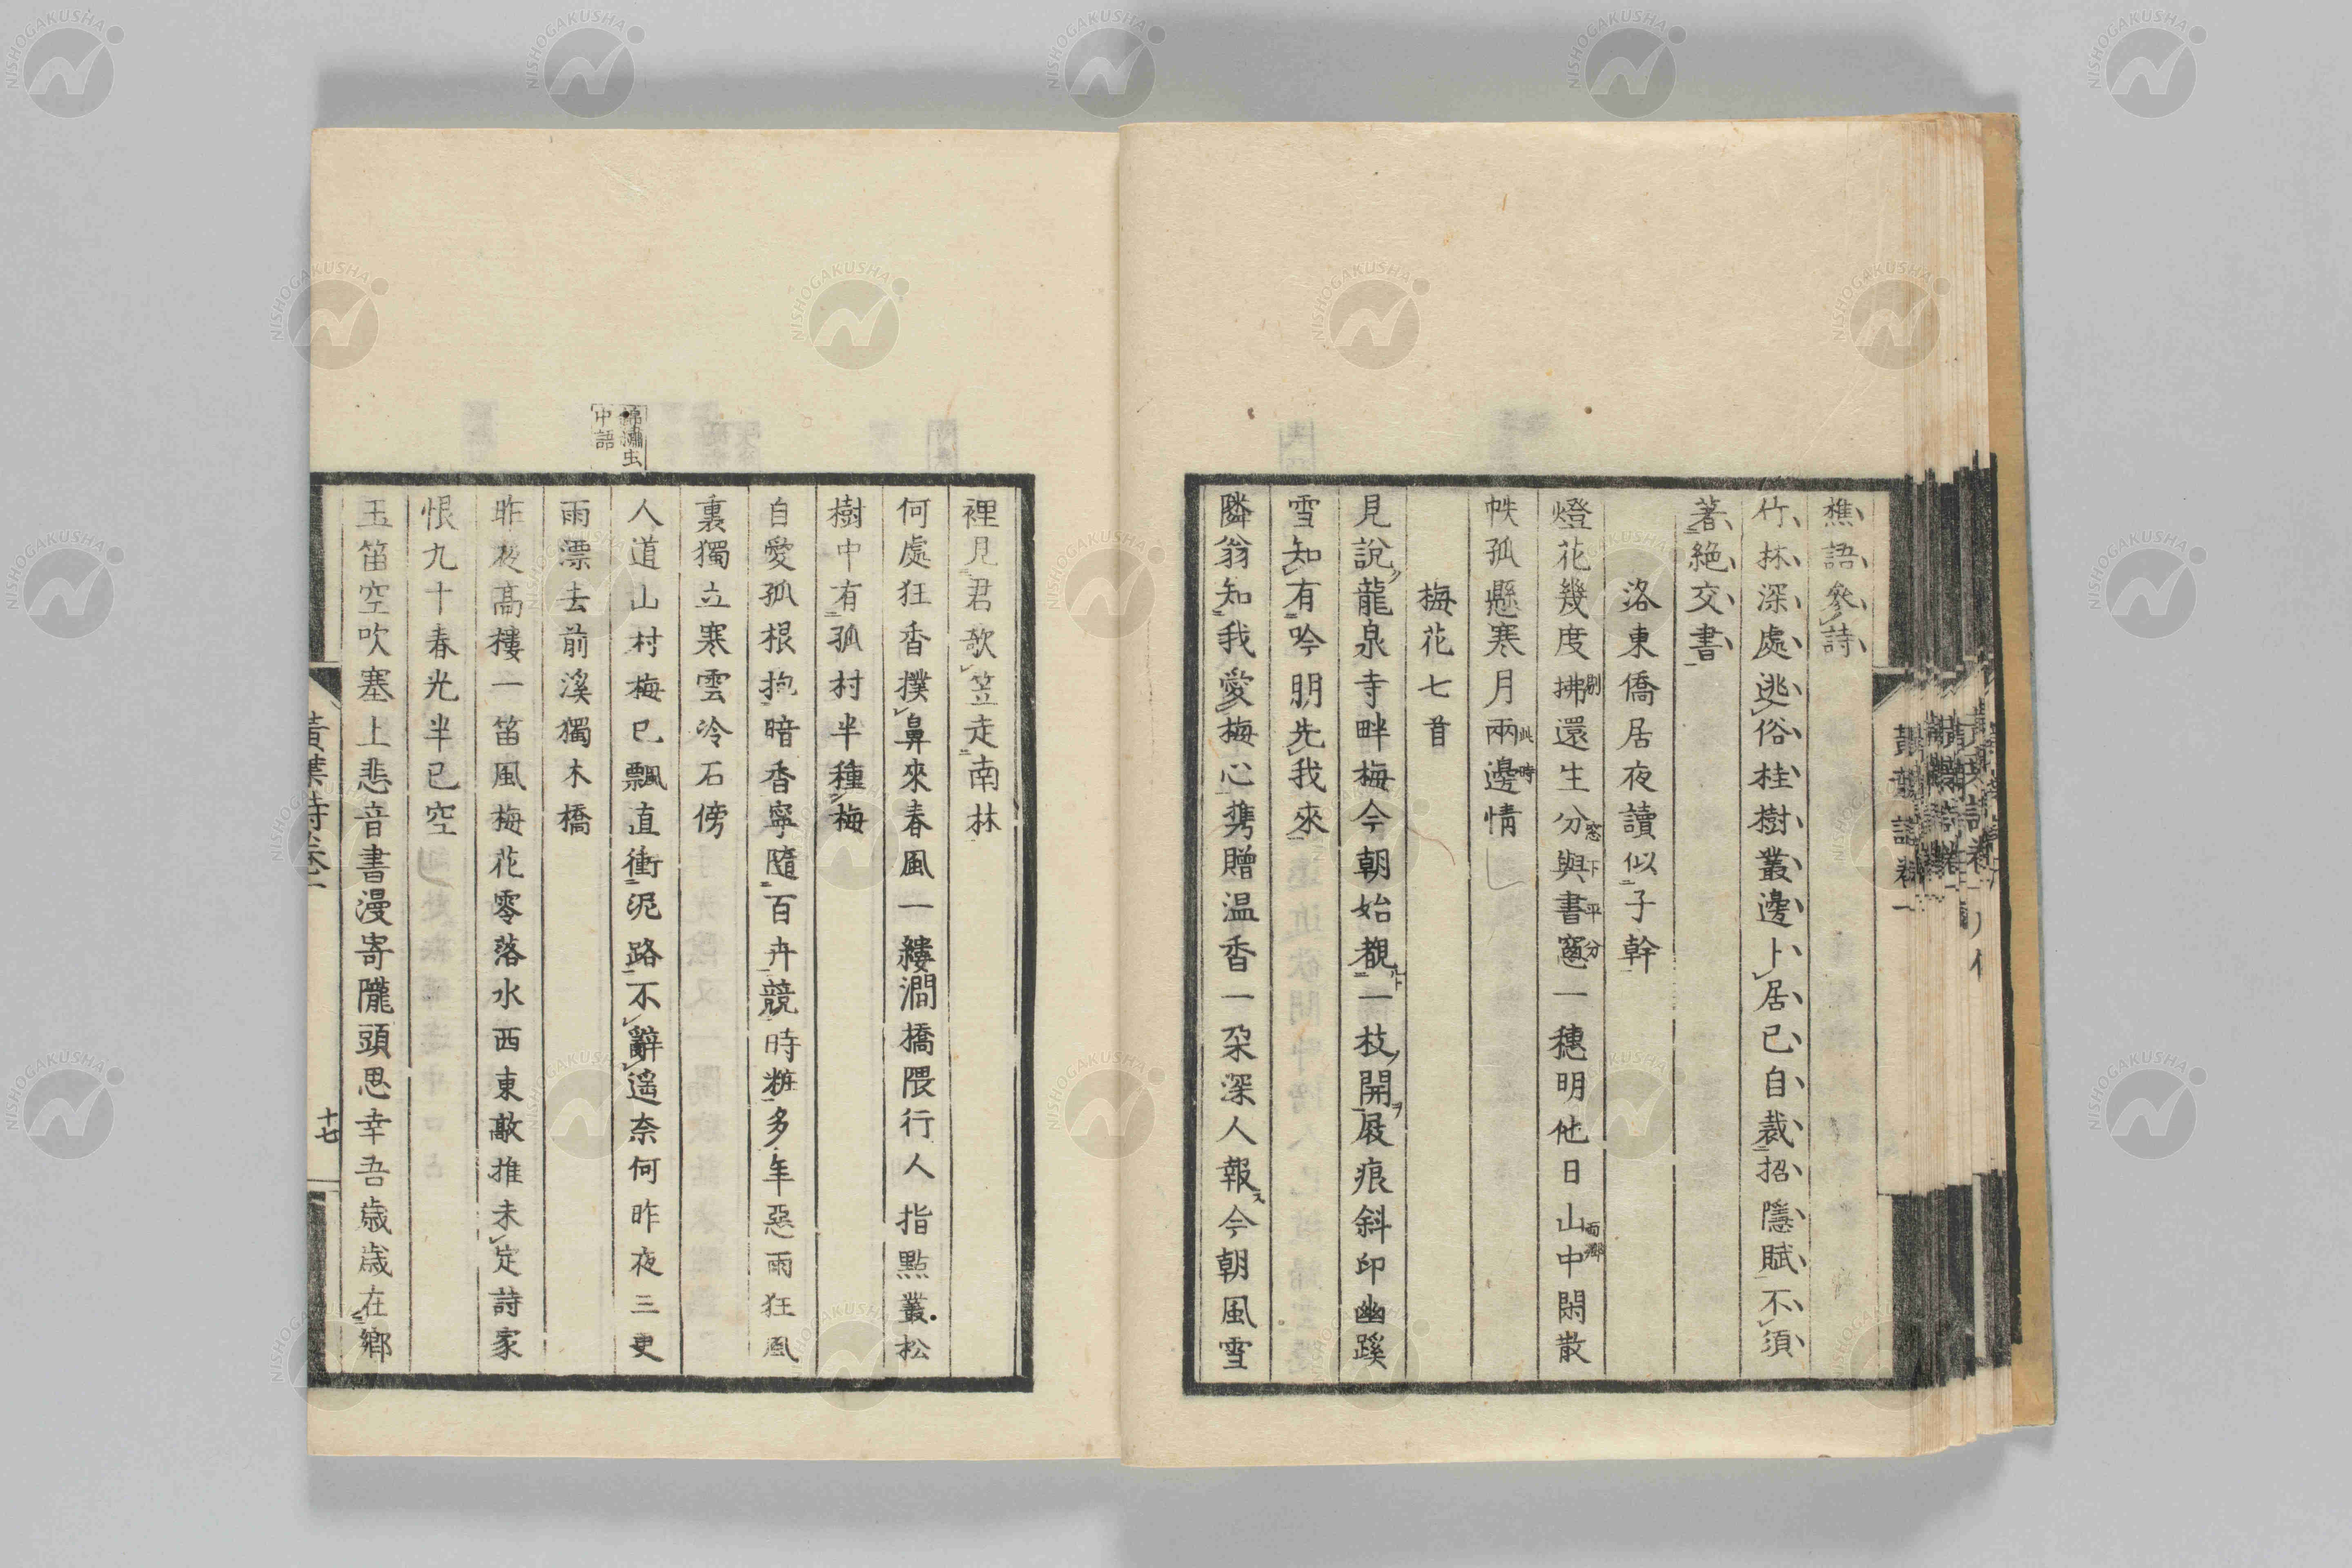 樵語參詩
竹林深處逃俗桂樹叢邊卜居已自裁招隱賦不須
著絕交書
洛東僑居夜讀似子幹
燈花幾度拂還生分與書窻一穗明他日山中閑散
剔
窓下平分
西鄉
帙孤懸寒月兩邊情
此時
梅花七首
見說龍泉寺畔梅今朝始覩一枝開屐痕斜印幽蹊
雪知有吟朋先我來
隣翁知我愛梅心携贈温香一朶深人報今朝風雪
裡見君歌笠走南林
何處狂香撲鼻來春風一縷澗橋隈行人指點叢松
樹中有孤村半種梅
自愛孤根抱暗香寧隨百卉競時粧多年惡雨狂風
裏獨立寒雲冷石傍
人道山村梅已飄直衝泥路不辭遥奈何昨夜三更
雨漂去前溪獨木橋
昨夜高樓一笛風梅花零落水西東敲推未定詩家
恨九十春光半已空
玉笛空吹塞上悲音書漫寄隴頭思幸吾歲歲在鄉
中語
黃葉詩卷一
十七
黃葉詩卷一
NISHOGAKUSHA